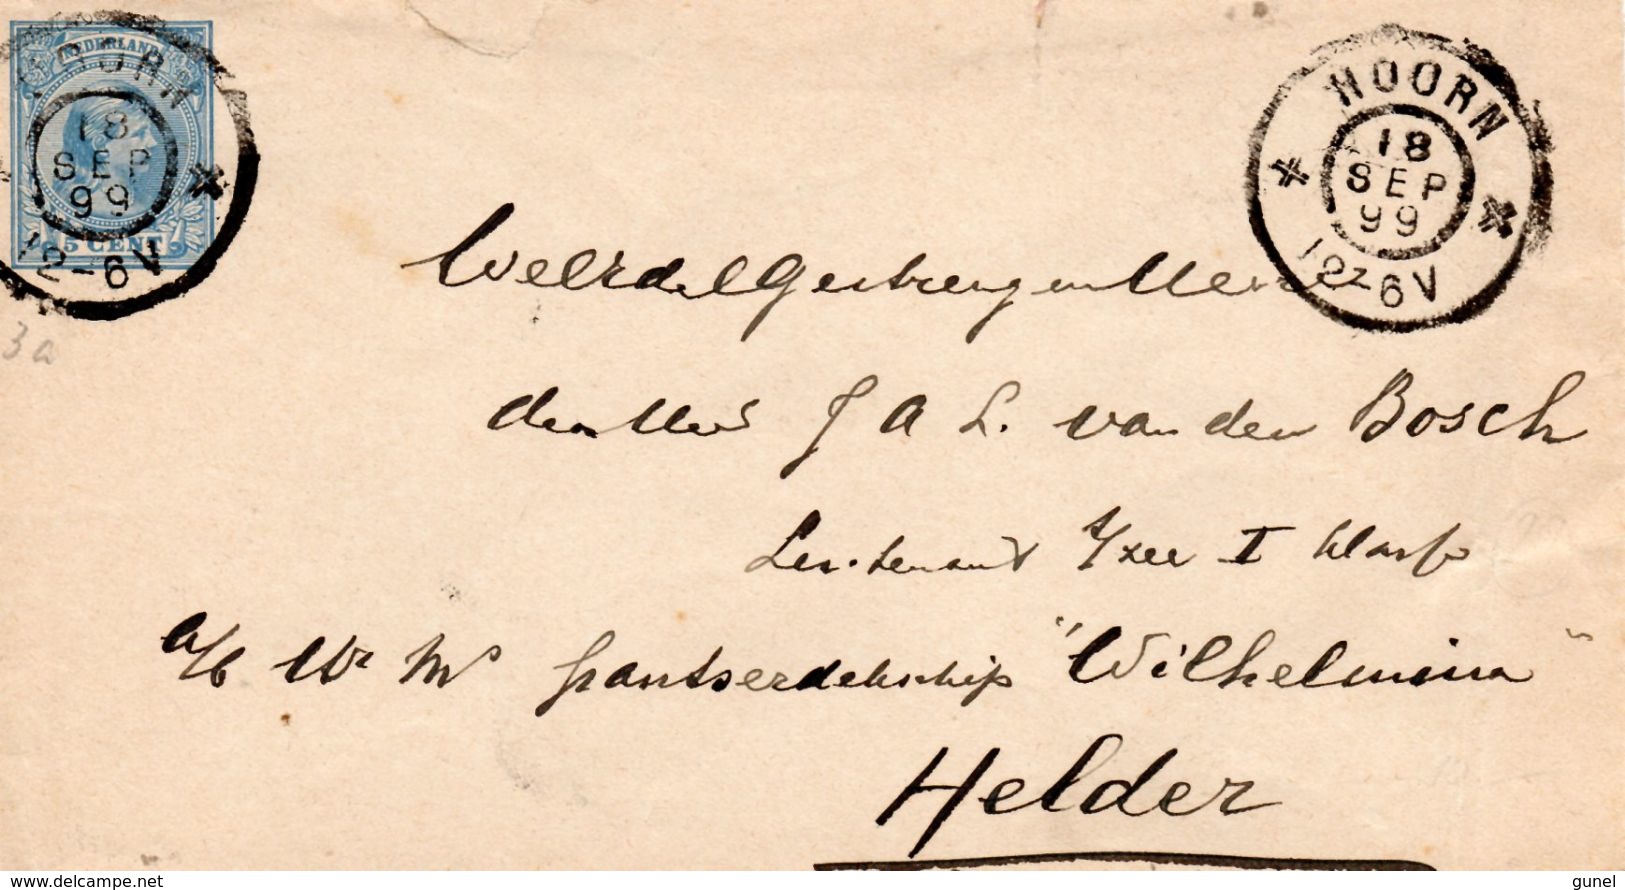 NEDERLAND
5 CENT
HOORN
18
SEP
99
12-6V
HOORN
18
SEP
99
12-6V
3a
WelEdelGestrengen Heer
den Heer J A L. van den Bosch
Luitenant t/zee I klasse
a/b Hr Ms pantserdekschip "Wilhelmina"
Helder
www.delcampe.net
gunel